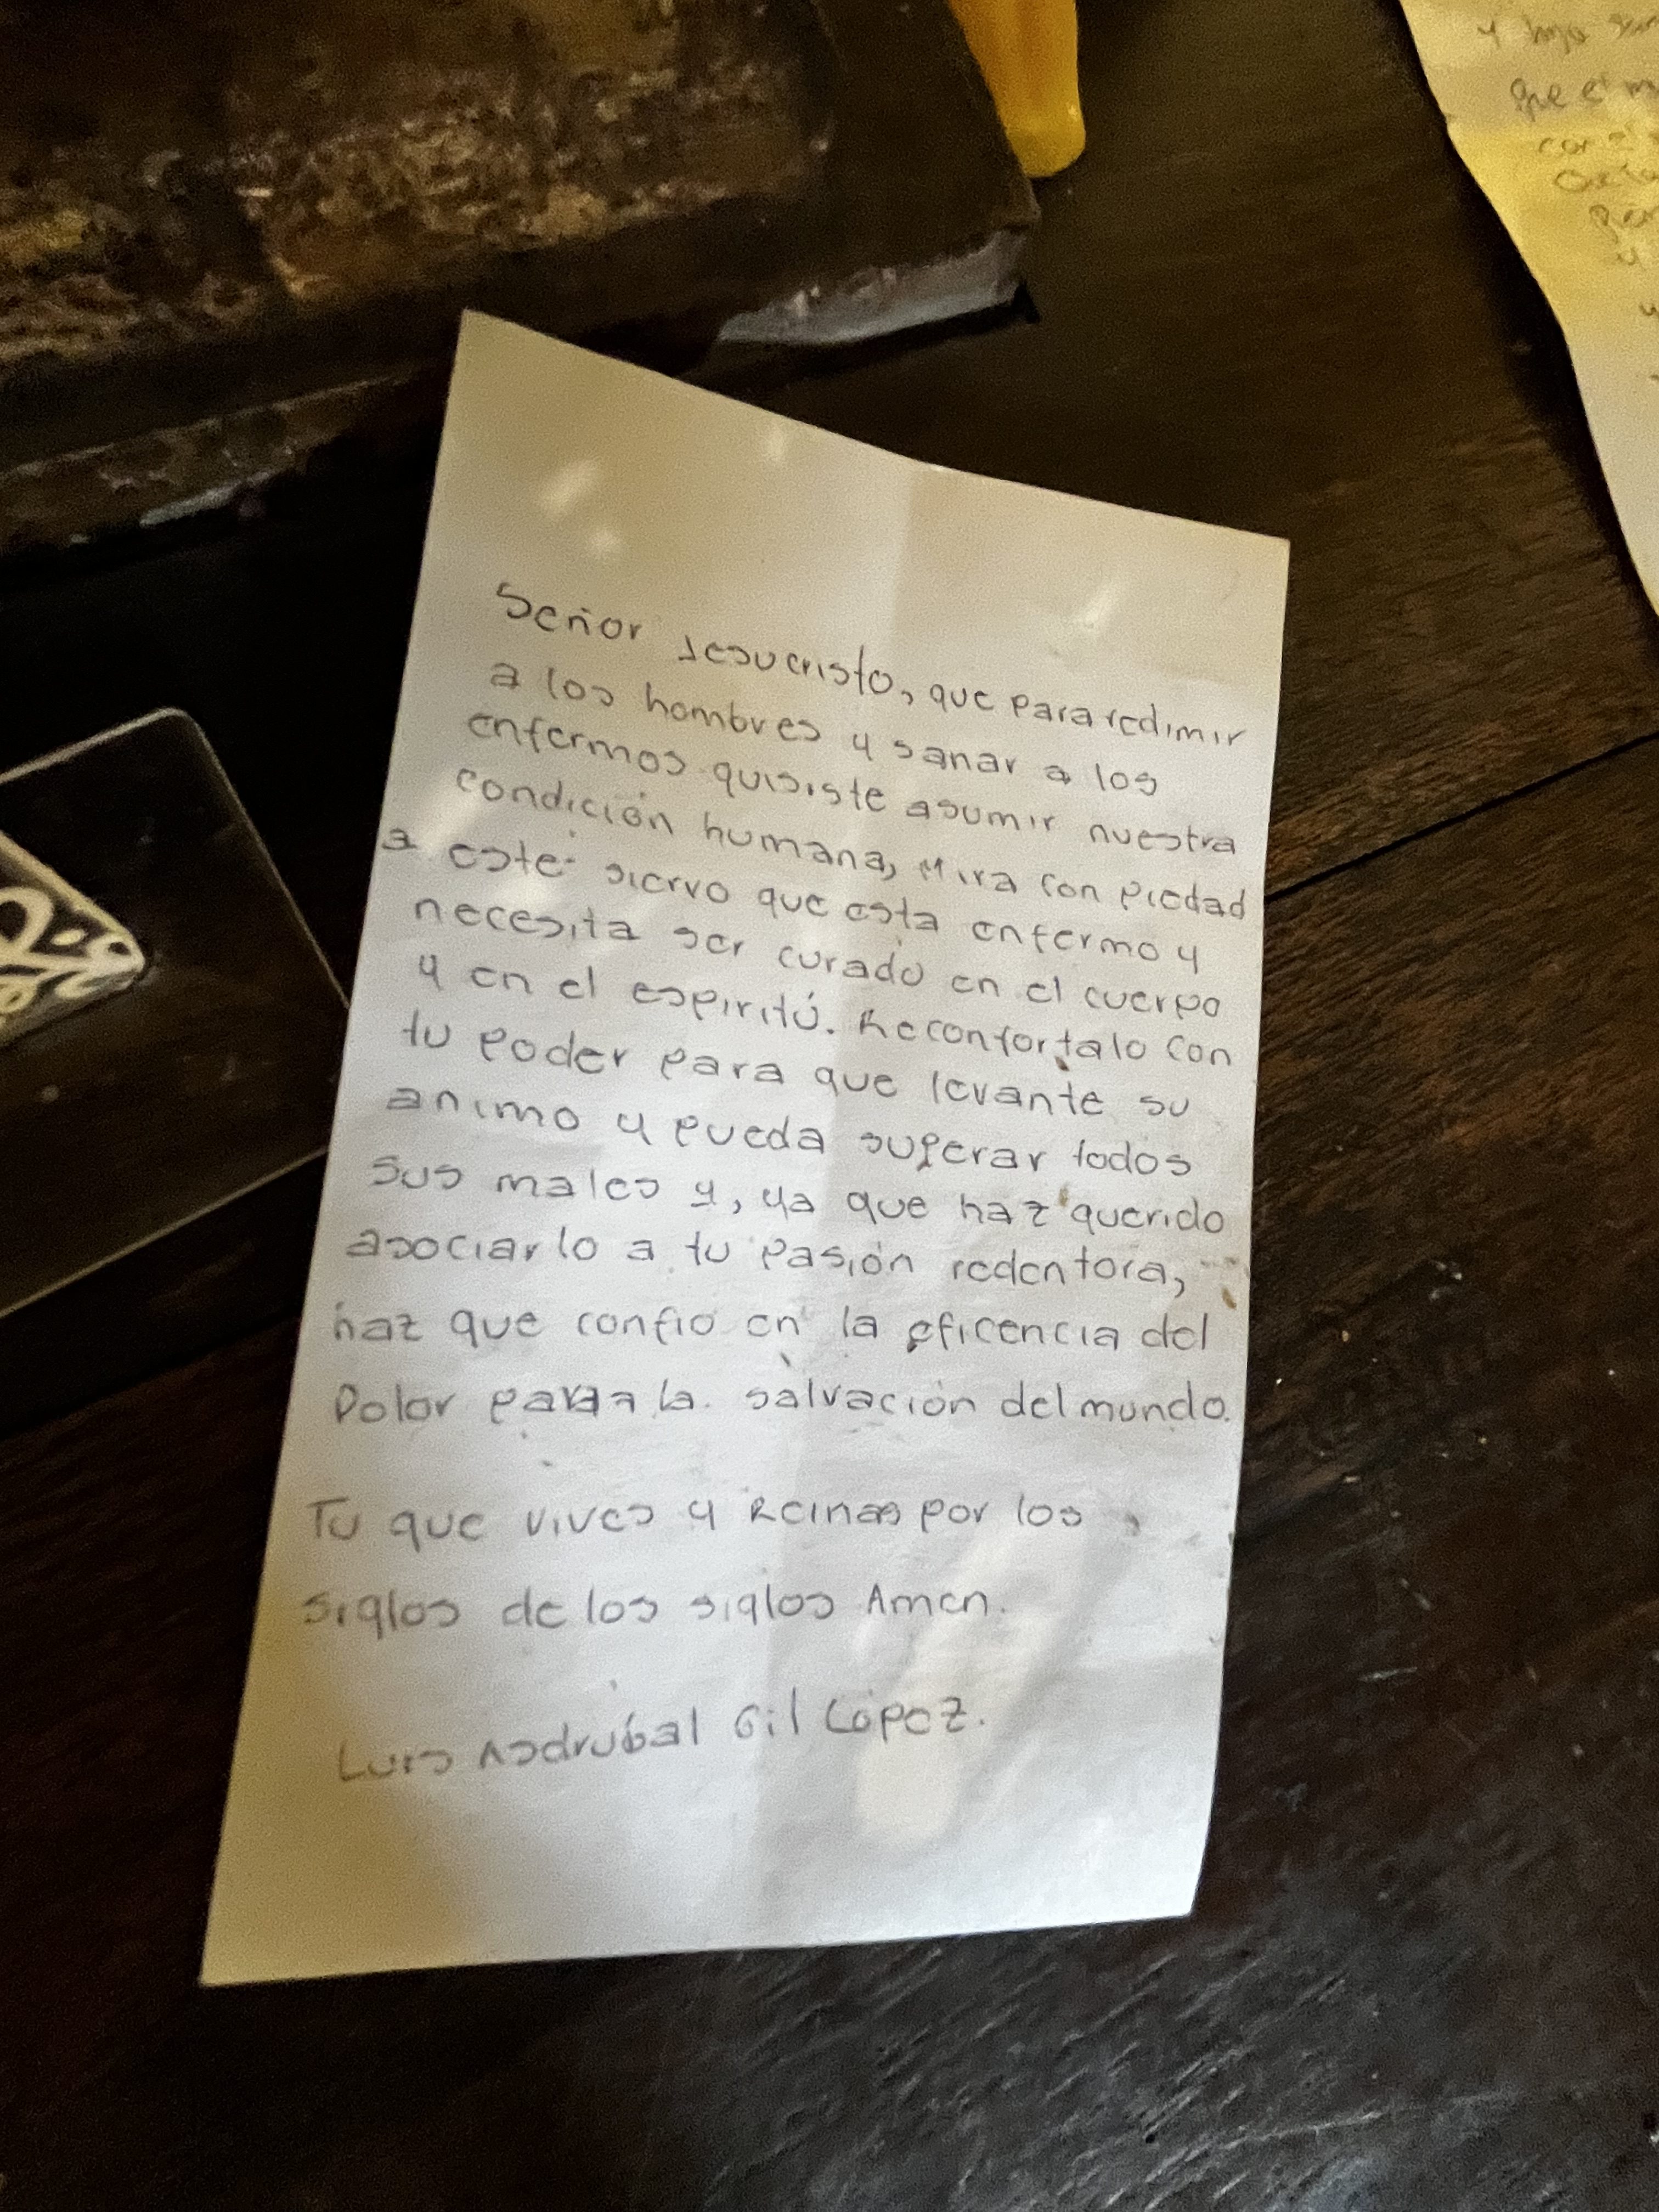 Señor Jesucristo, que para redimir
a los hombres y sanar a los
enfermos quisiste asumir nuestra
condición humana, Mira con piedad
a este siervo que esta enfermo y
necesita ser curado en el cuerpo
y en el espiritú. Reconfortalo con
tu poder para que levante su
animo y pueda superar todos
sus males y, ya que haz querido
asociarlo a tu pasión redentora,
haz que confió en la eficencia del
Dolor para la salvación del mundo.
Tu que vives y Reinas por los
siglos de los siglos Amen.
Luis Asdrubal Gil López.
y hijo
que el
con el